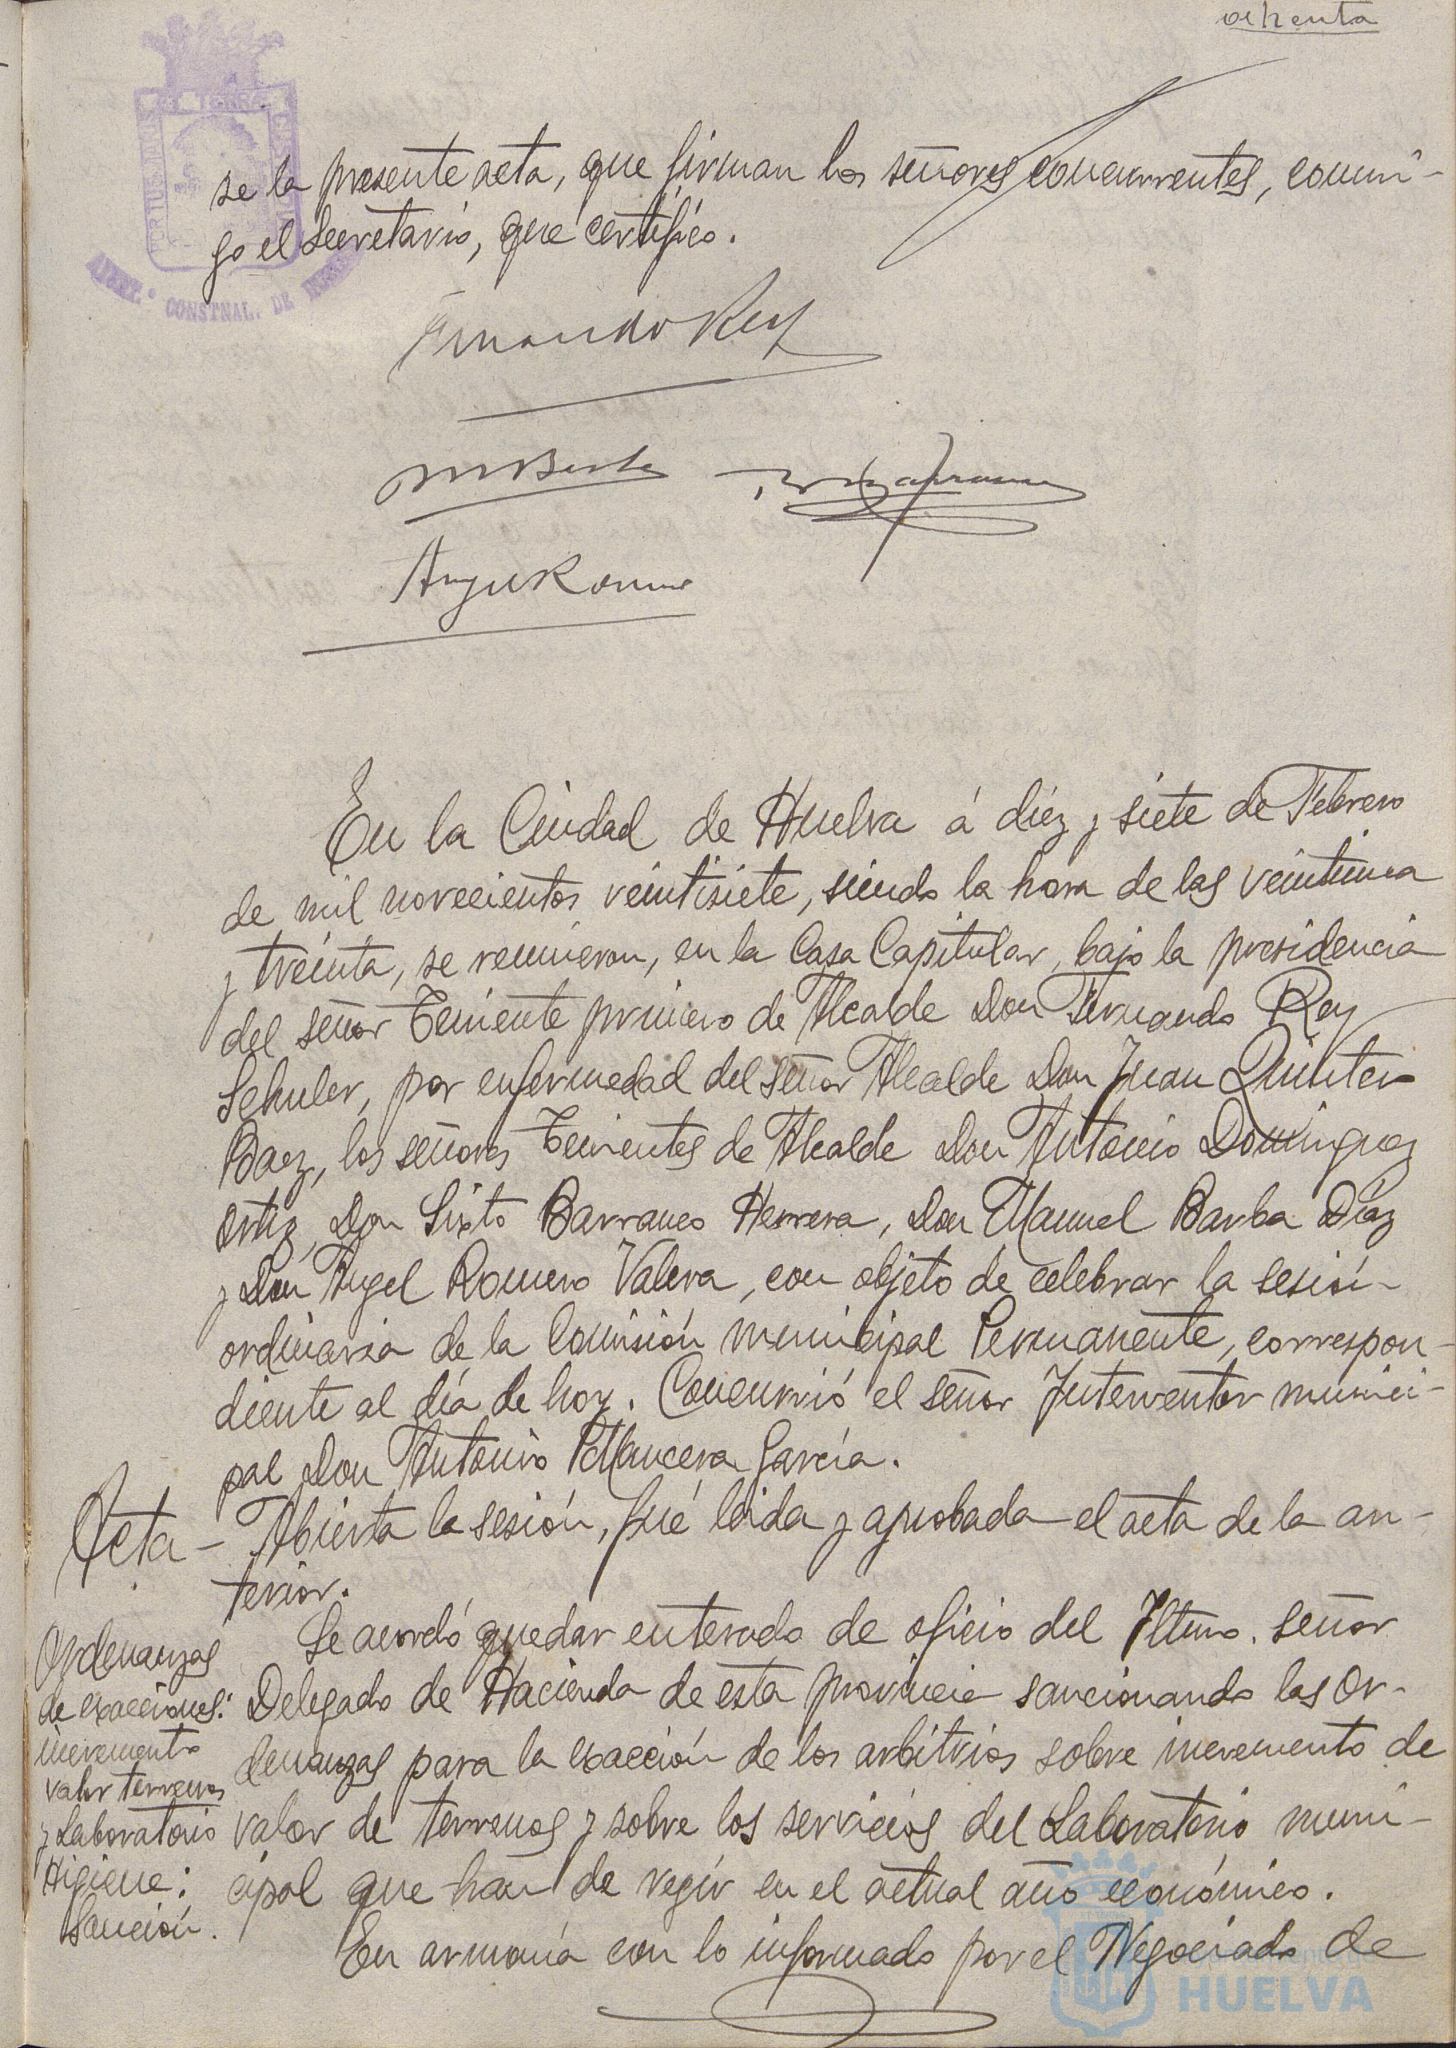 ochenta
se la presente acta, que firman los señores concurrentes, conmi-
go el Secretario, que certifico.
CONSTNAL. DE
Fernando Rey
M Barba
Angel Romero
En la Ciudad de Huelva á diez y siete de Febrero
de mil novecientos veintisiete, siendo la hora de las veintiuna
y treinta, se reunieron, en la Casa Capitular, bajo la presidencia
del señor Teniente primero de Alcalde Don Fernando Rey
Schuler, por enfermedad del señor Alcalde Don Juan Quintero
Baez, los señores Tenientes de Alcalde Don Antonio Dominguez
Ortiz, Don Sixto Barranco Herrera, Don Manuel Barba Díaz
y Don Angel Romero Valera, con objeto de celebrar la sesión
ordinaria de la Comisión municipal Permanente, correspon-
diente al día de hoy. Concurrió el señor Interventor munici-
pal Don Antonio Mancera García.
Acta - Abierta la sesión, fué leida y aprobada el acta de la an-
terior.
Ordenanzas
de exacciones:
incremento
valor terrenos
y Laboratorio
Higiene:
Sanción.
Se acordó quedar enterada de oficio del Iltmo. señor
Delegado de Hacienda de esta provincia sancionando las Or-
denanzas para la exacción de los arbitrios sobre incremento de
valor de terrenos y sobre los servicios del Laboratorio muni-
cipal que han de regir en el actual año económico.
En armonía con lo informado por el Negociado de
HUELVA